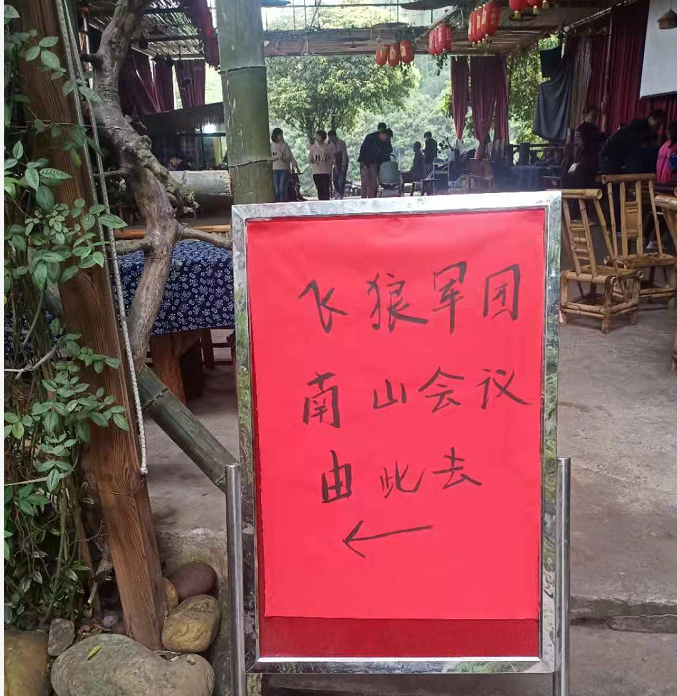 飞狼军团
南山会议
由此去
←